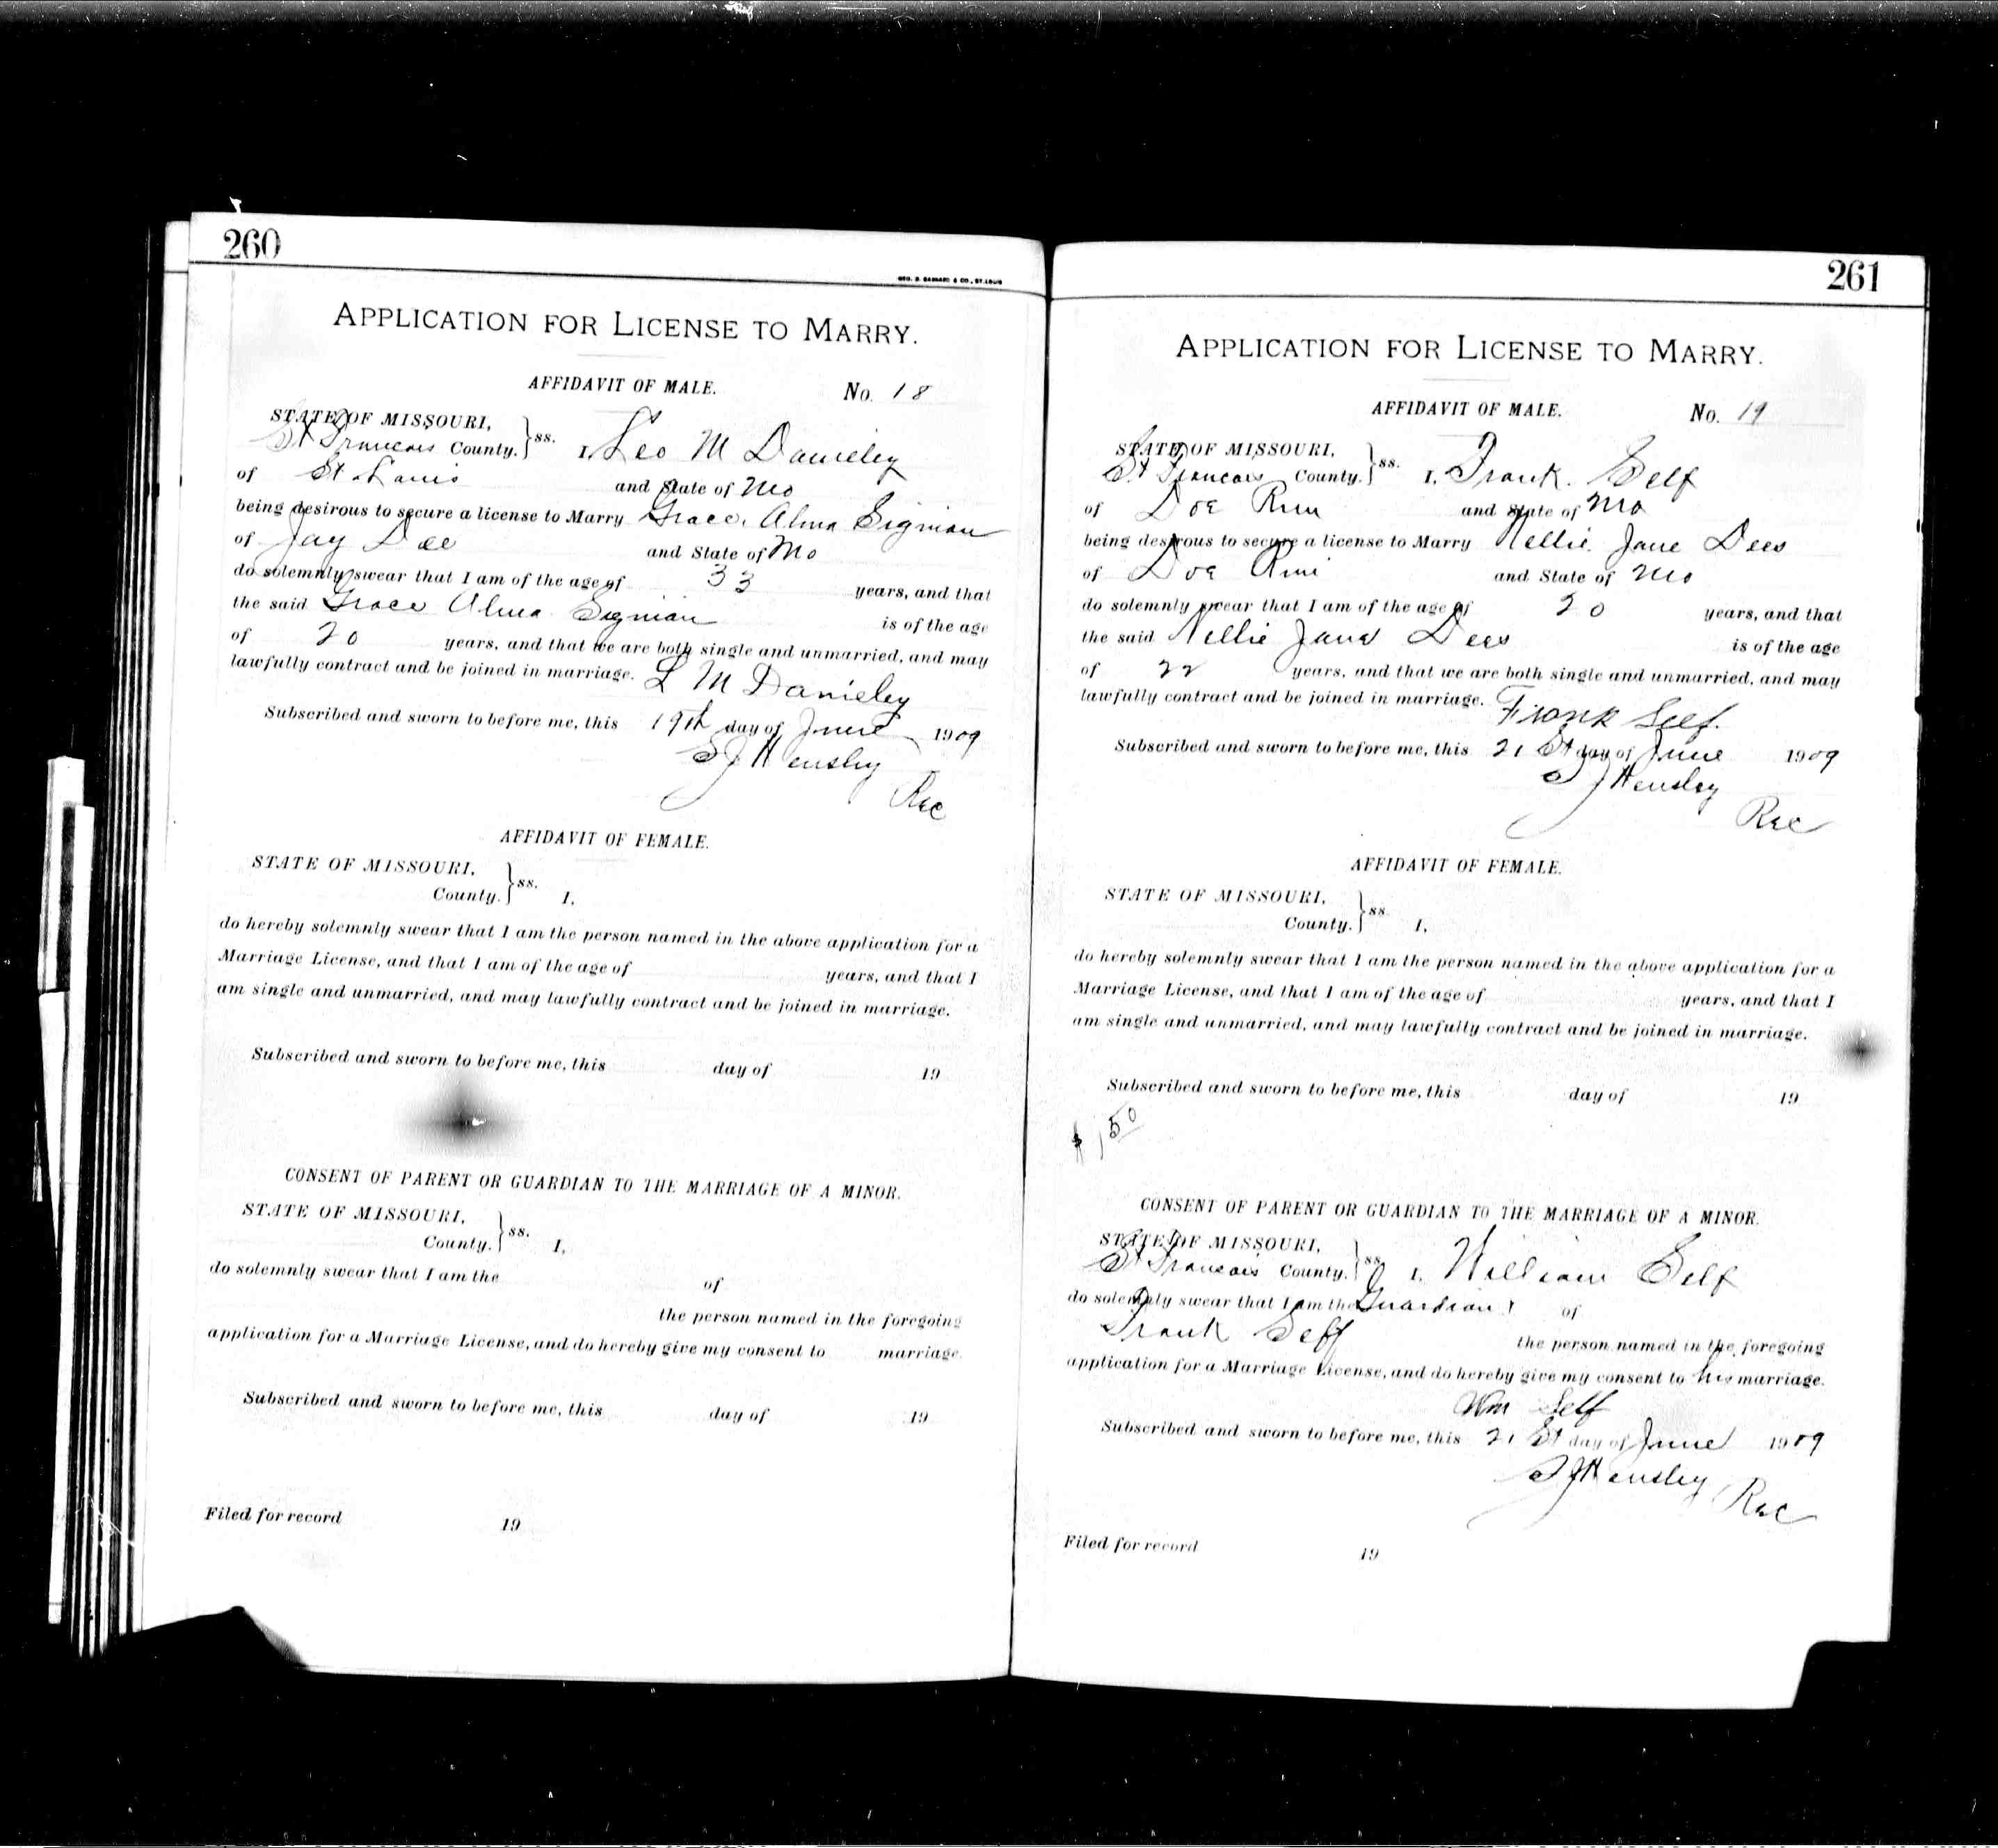 260
GEO. D. BARNARD & CO., ST. LOUIS
APPLICATION FOR LICENSE TO MARRY.
AFFIDAVIT OF MALE. No. 18
STATE OF MISSOURI,
St Francois County. } ss. I, Leo M Danieley
of St. Louis and State of Mo
being desirous to secure a license to Marry Grace Alma Sigman
of Jay Dee and State of Mo
do solemnly swear that I am of the age of 33 years, and that
the said Grace Alma Sigman is of the age
of 20 years, and that we are both single and unmarried, and may
lawfully contract and be joined in marriage. L M Danieley
Subscribed and sworn to before me, this 19th day of June 1909
S J Hensley
Rec
AFFIDAVIT OF FEMALE.
STATE OF MISSOURI,
County. } ss. I,
do hereby solemnly swear that I am the person named in the above application for a
Marriage License, and that I am of the age of years, and that I
am single and unmarried, and may lawfully contract and be joined in marriage.
Subscribed and sworn to before me, this day of 19
CONSENT OF PARENT OR GUARDIAN TO THE MARRIAGE OF A MINOR.
STATE OF MISSOURI,
County. } ss. I,
do solemnly swear that I am the of
the person named in the foregoing
application for a Marriage License, and do hereby give my consent to marriage.
Subscribed and sworn to before me, this day of 19
Filed for record 19
261
APPLICATION FOR LICENSE TO MARRY.
AFFIDAVIT OF MALE. No. 19
STATE OF MISSOURI,
St Francois County. } ss. I, Frank Self
of Doe Run and State of Mo
being desirous to secure a license to Marry Nellie Jane Dees
of Doe Run and State of Mo
do solemnly swear that I am of the age of 20 years, and that
the said Nellie Jane Dees is of the age
of 22 years, and that we are both single and unmarried, and may
lawfully contract and be joined in marriage. Frank Self.
Subscribed and sworn to before me, this 21 St day of June 1909
S J Hensley
Rec
AFFIDAVIT OF FEMALE.
STATE OF MISSOURI,
County. } ss. I,
do hereby solemnly swear that I am the person named in the above application for a
Marriage License, and that I am of the age of years, and that I
am single and unmarried, and may lawfully contract and be joined in marriage.
Subscribed and sworn to before me, this day of 19
$1.50
CONSENT OF PARENT OR GUARDIAN TO THE MARRIAGE OF A MINOR.
STATE OF MISSOURI,
St Francois County. } ss. I, William Self
do solemnly swear that I am the Guardian of
Frank Self the person named in the foregoing
application for a Marriage License, and do hereby give my consent to his marriage.
Wm Self
Subscribed and sworn to before me, this 21 St day of June 1909
S J Hensley
Rec
Filed for record 19